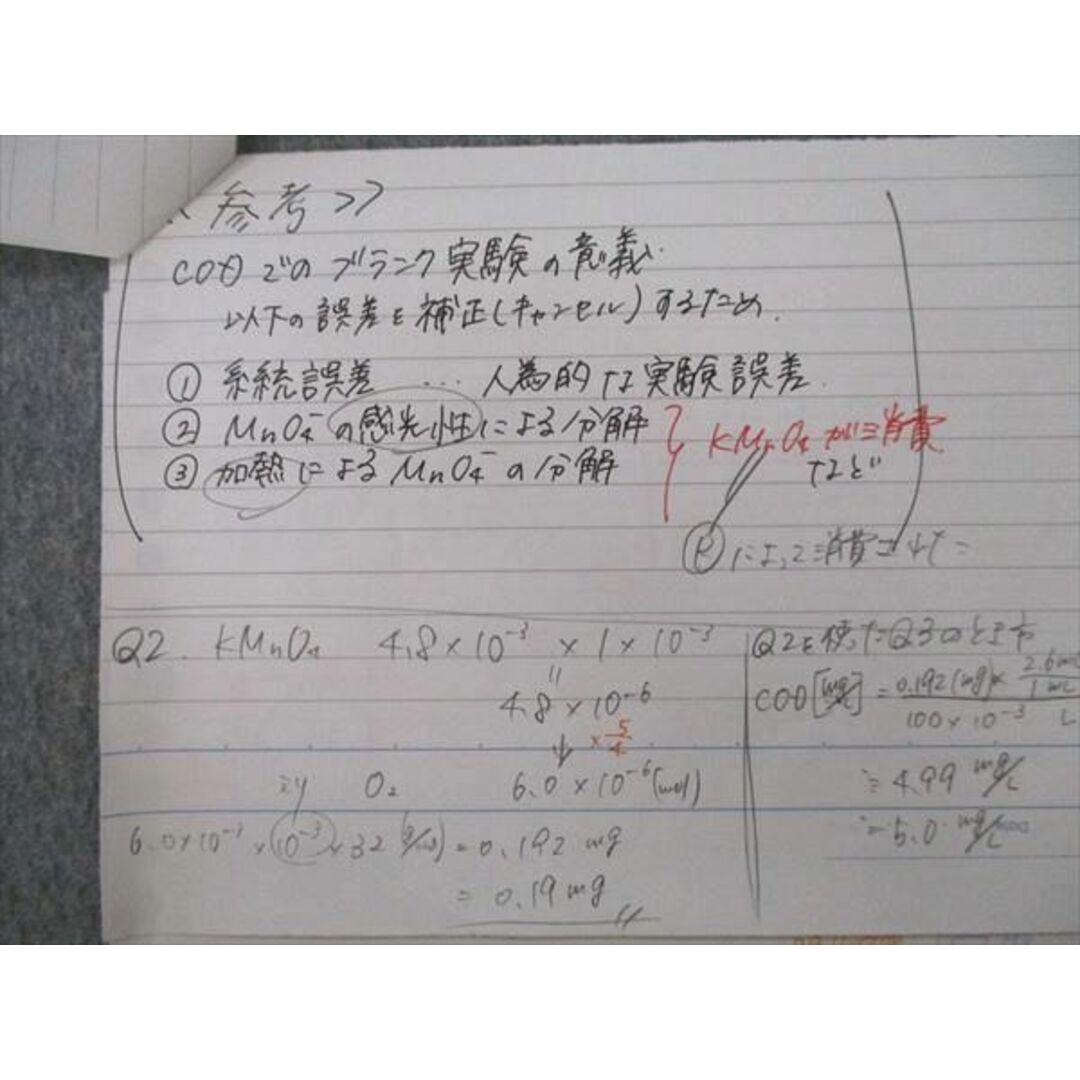 参考>>
CODでのブランク実験の意義.
以下の誤差を補正(キャンセル)するため.
① 系統誤差 … 人為的な実験誤差.
② MnO4⁻の感光性による分解
③ 加熱によるMnO4⁻の分解
KMnO4が消費
など
によって消費
Q2. KMnO4 4.8×10⁻³ × 1×10⁻³
〃
4.8×10⁻⁶
↓ ×5/4
より O2 6.0×10⁻⁶(mol)
×10⁻³ ×32 = 0.192 mg
= 0.19 mg
Q2を使ったQ3のとき方
COD[mg/L] = 0.192(mg)× 2.6mL/1mL / 100×10⁻³ L
≒ 4.99 mg/L
≒ 5.0 mg/L